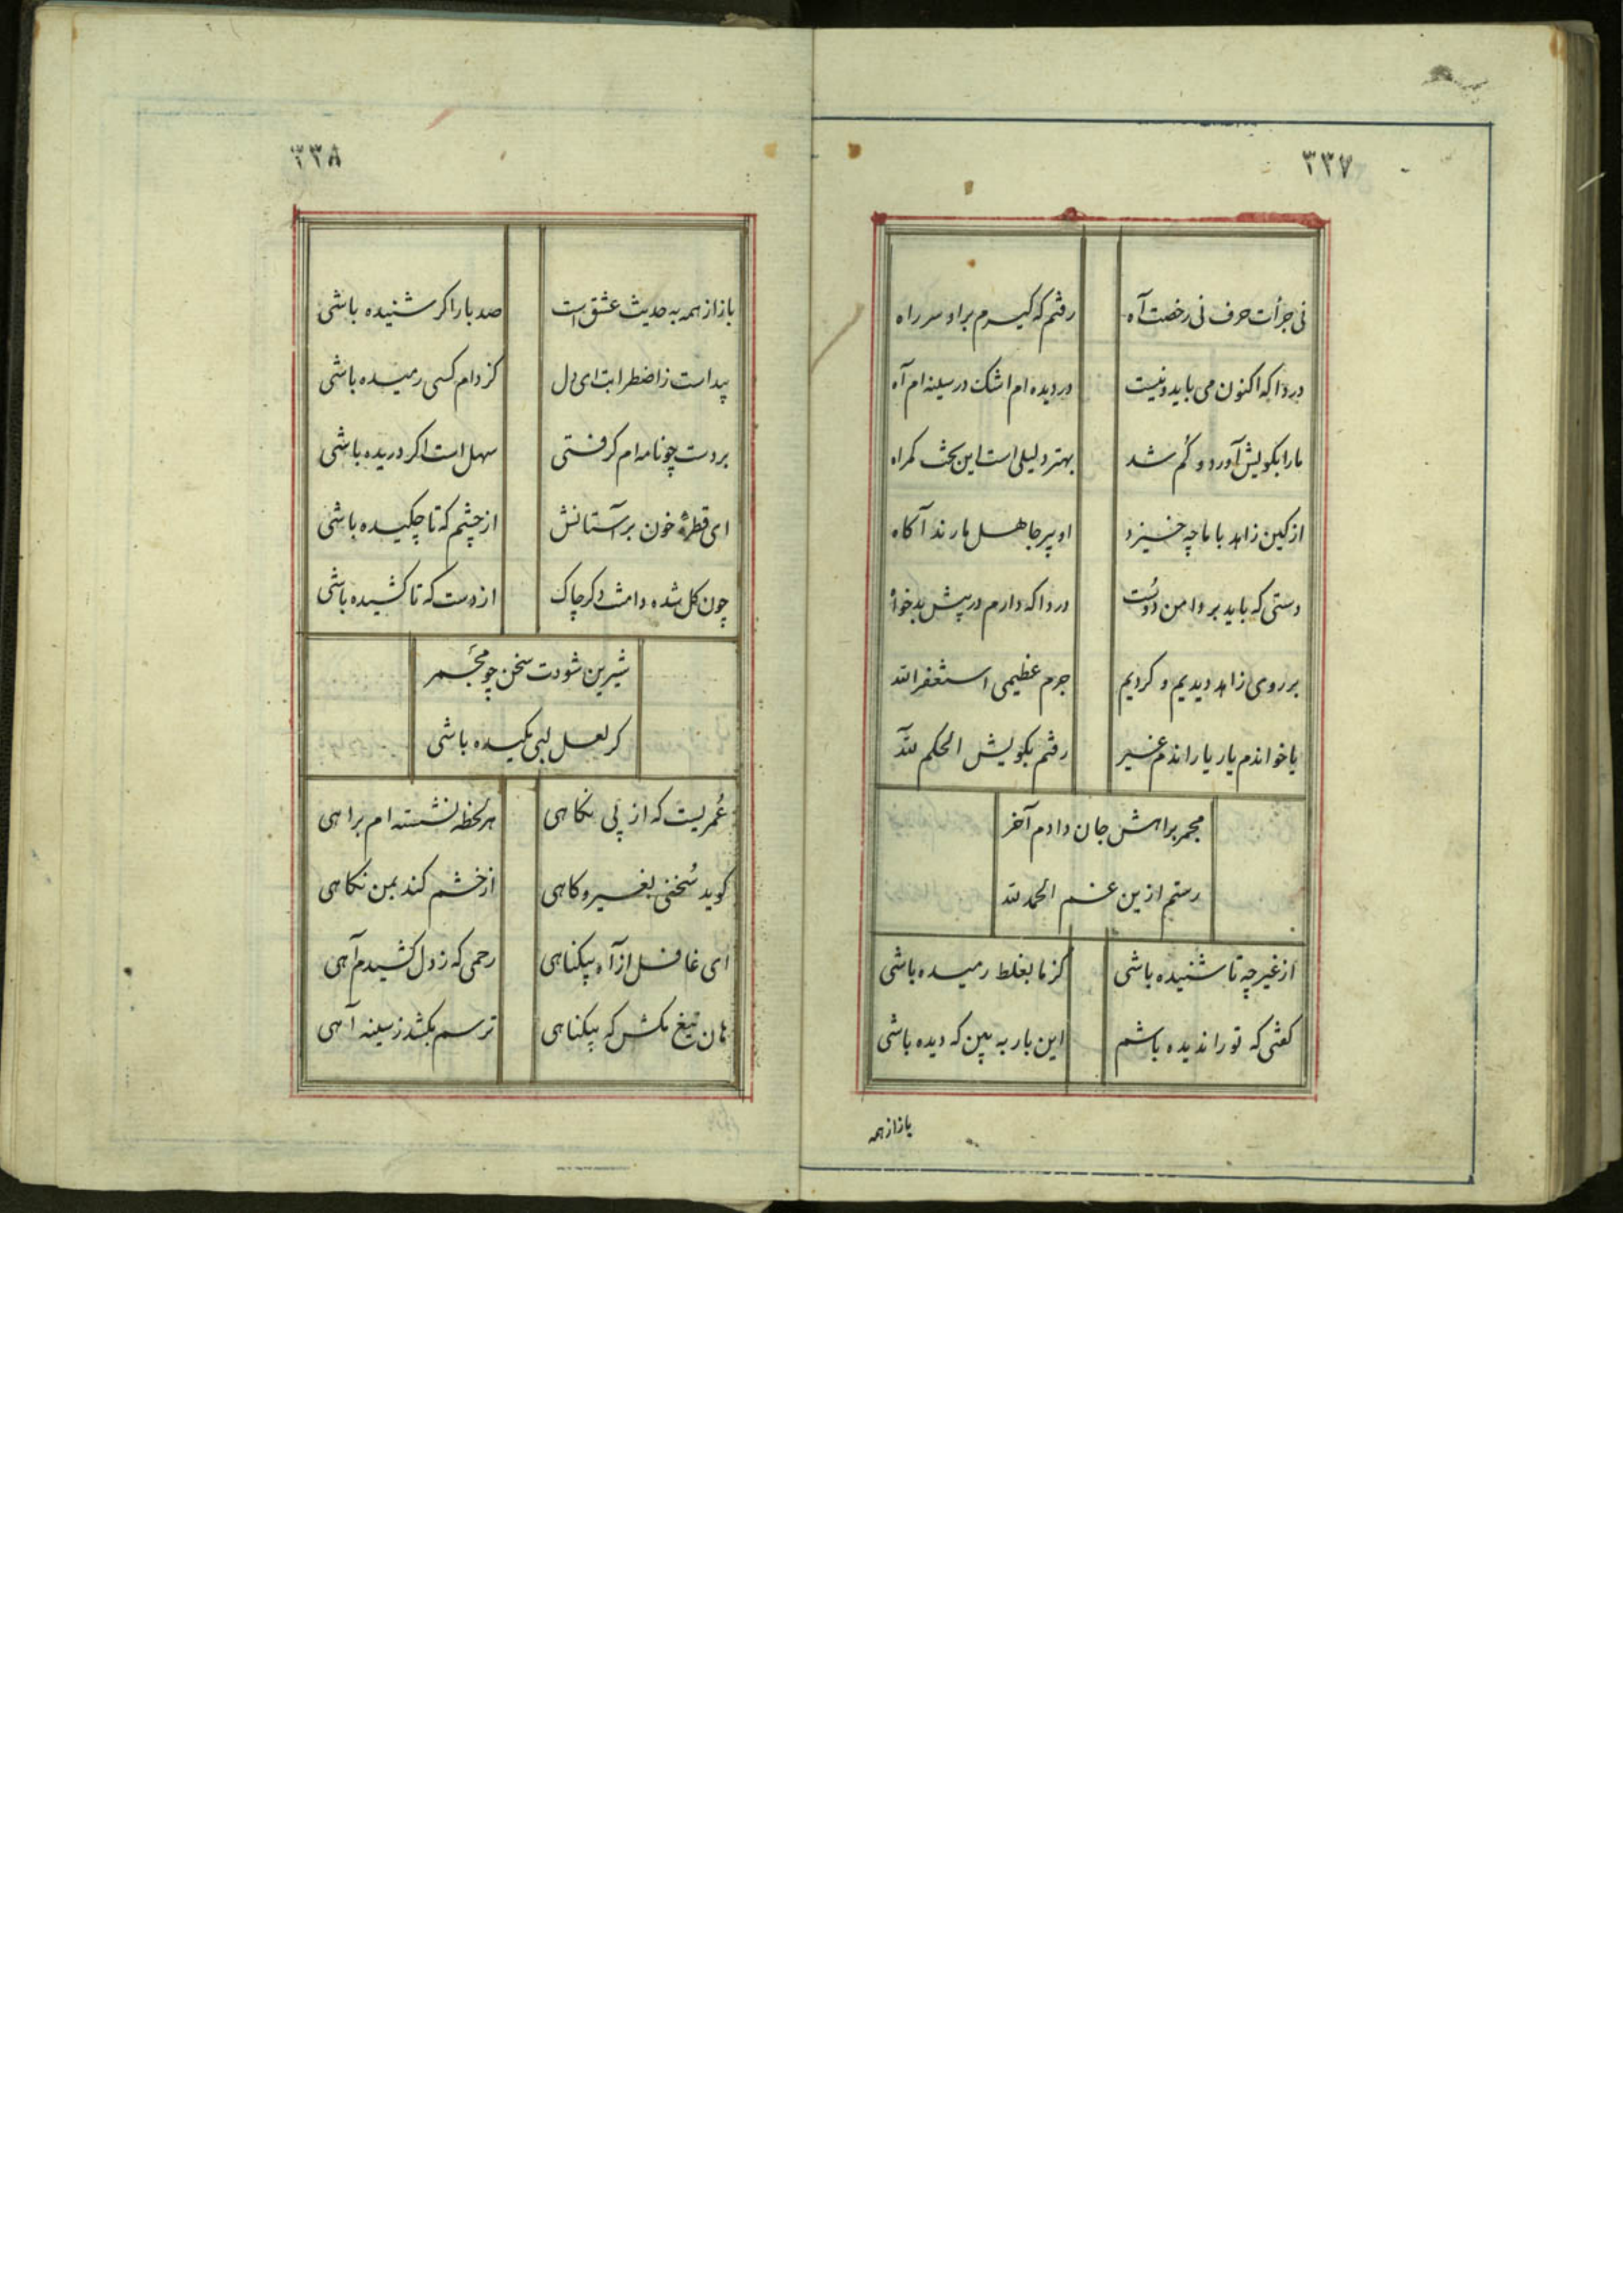 ۳۳۷
نی جرأت حرف نی رخصت آه رفتم که گیرم بر او سر راه
دردا که اکنون می باید و نیست در دیده ام اشک در سینه ام آه
ما را بکویش آورد و گم شد بهتر دلیلی است این بخت گمراه
از کین زاهد با ما چه خیزد او پیر جاهل ما رند آگاه
دستی که باید بر دامن دوست دردا که دارم در پیش بدخواه
بر روی زاهد دیدیم و کردیم جرم عظیمی استغفر الله
یا خواندم یار یا راندم غیر رفتم بکویش الحکم لله
مجمر براهش جان دادم آخر
رستم ازین غم الحمد لله
از غیر چه تا شنیده باشی کز ما بغلط رمیده باشی
گفتی که تو را ندیده باشم این بار به بین که دیده باشی
باز از همه
۳۳۸
باز از همه به حدیث عشق است صد بار اگر شنیده باشی
پیداست ز اضطرابت ای دل کز دام کسی رمیده باشی
بر دست چو نامه ام گرفتی سهل است اگر دریده باشی
ای قطرهٔ خون بر آستانش از چشم که تا چکیده باشی
چون گل شده دامنت دگر چاک از دست که تا کشیده باشی
شیرین شودت سخن چو مجمر
گر لعل لبی مکیده باشی
عمریست که از پی نگاهی هر لحظه نشسته ام براهی
گوید سخنی بغیر و گاهی از خشم کند بمن نگاهی
ای غافل از آه بیگناهی رحمی که ز دل کشیدم آهی
هان تیغ مکش که بیگناهی ترسم بکشد ز سینه آهی